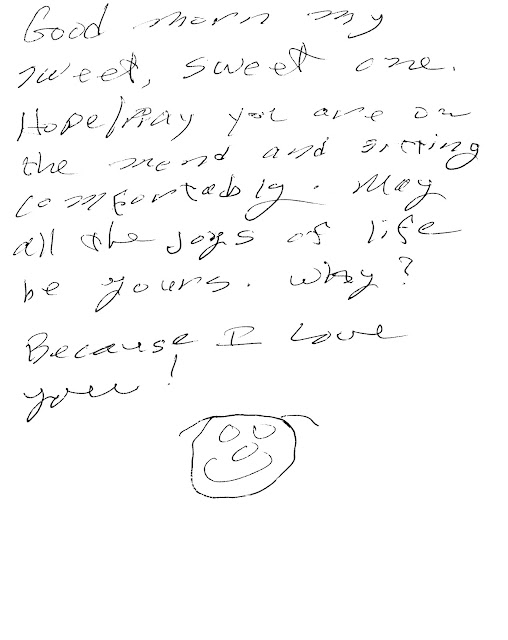 Good morn my
sweet, sweet one.
Hope/Pray you are on
the mend and sitting
comfortably. May
all the joys of life
be yours. Why?
Because I Love
you!